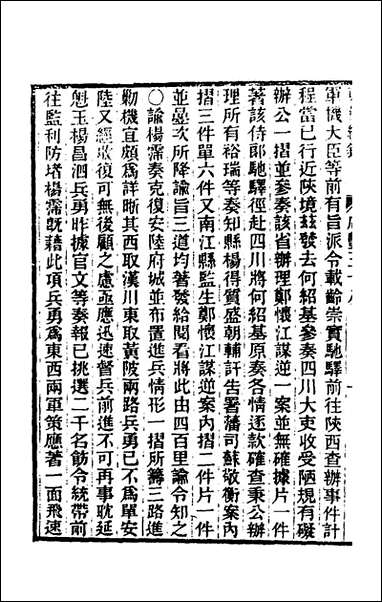 軍機大臣等前有旨派令載齡崇實馳驛前往陝西查辦事件計
程當已行近陝境茲發去何紹基參奏四川大吏收受陋規有礙
辦公一摺並參奏該省辦理鄭懷江謀逆一案並無確據片一件
著該侍郎馳驛徑赴四川將何紹基原奏各情逐款確查秉公辦
理所有裕瑞等奏知縣楊得質盛朝輔訐吿署藩司蘇敬衡案內
摺三件單六件又南江縣監生鄭懷江謀逆案內摺二件片一件
並疊次所降諭旨三道均著發給閱看將此由四百里諭令知之
〇諭楊霈奏克復安陸府城並布置進兵情形一摺所籌三路進
勦機宜頗爲詳晰其西取漢川東取黃陂兩路兵勇已不爲單安
陸又經收復可無後顧之慮亟應迅速督兵前進不可再事耽延
魁玉楊昌泗兵勇昨據官文等奏報已挑選二千名飭令統帶前
往監利防堵楊霈旣藉此項兵勇爲東西兩軍策應著一面飛速